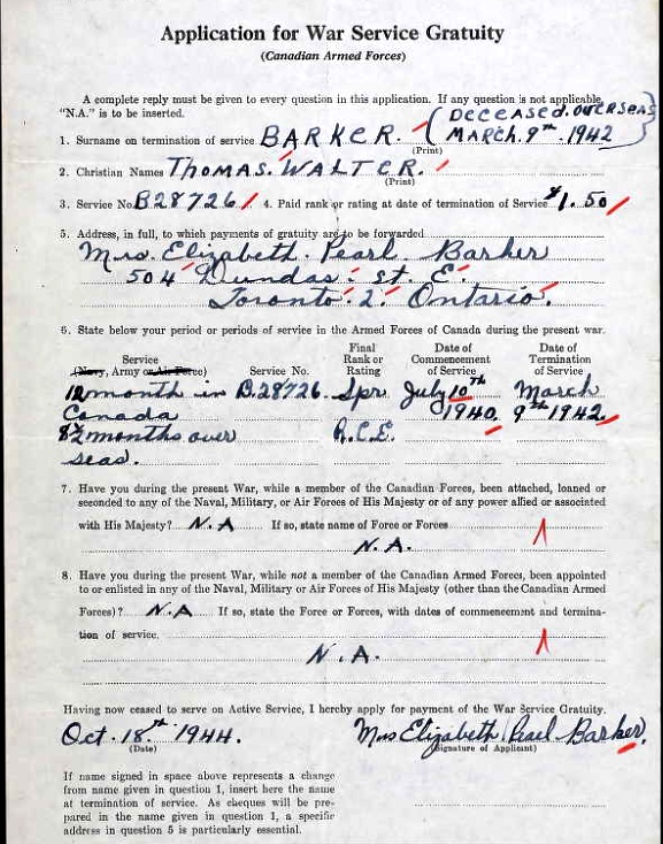 Application for War Service Gratuity
(Canadian Armed Forces)
A complete reply must be given to every question in this application. If any question is not applicable,
"N.A." is to be inserted.
(DECEASED. OVERSEAS
MARCH. 9th. 1942)
1. Surname on termination of service BARKER.
(Print)
2. Christian Names THOMAS. WALTER.
(Print)
3. Service No. B28726 4. Paid rank or rating at date of termination of Service $1.50
5. Address, in full, to which payments of gratuity are to be forwarded
Mrs. Elizabeth. Pearl Barker
504 Dundas. St. E.
Toronto. 2. Ontario.
6. State below your period or periods of service in the Armed Forces of Canada during the present war.
Service
(Navy, Army or Air Force)
Service No.
Final
Rank or
Rating
Date of
Commencement
of Service
Date of
Termination
of Service
12 month in B.28726. Spr July 10th March
Canada 1940. 9th 1942.
8½ months over R.C.E.
seas.
7. Have you during the present War, while a member of the Canadian Forces, been attached, loaned or
seconded to any of the Naval, Military, or Air Forces of His Majesty or of any power allied or associated
with His Majesty? N.A If so, state name of Force or Forces
N.A.
8. Have you during the present War, while not a member of the Canadian Armed Forces, been appointed
to or enlisted in any of the Naval, Military or Air Forces of His Majesty (other than the Canadian Armed
Forces)? N.A If so, state the Force or Forces, with dates of commencement and termina-
tion of service.
N.A.
Having now ceased to serve on Active Service, I hereby apply for payment of the War Service Gratuity.
Oct. 18.th 1944. Mrs Elizabeth Pearl Barker.
(Date) (Signature of Applicant)
If name signed in space above represents a change
from name given in question 1, insert here the name
at termination of service. As cheques will be pre-
pared in the name given in question 1, a specific
address in question 5 is particularly essential.